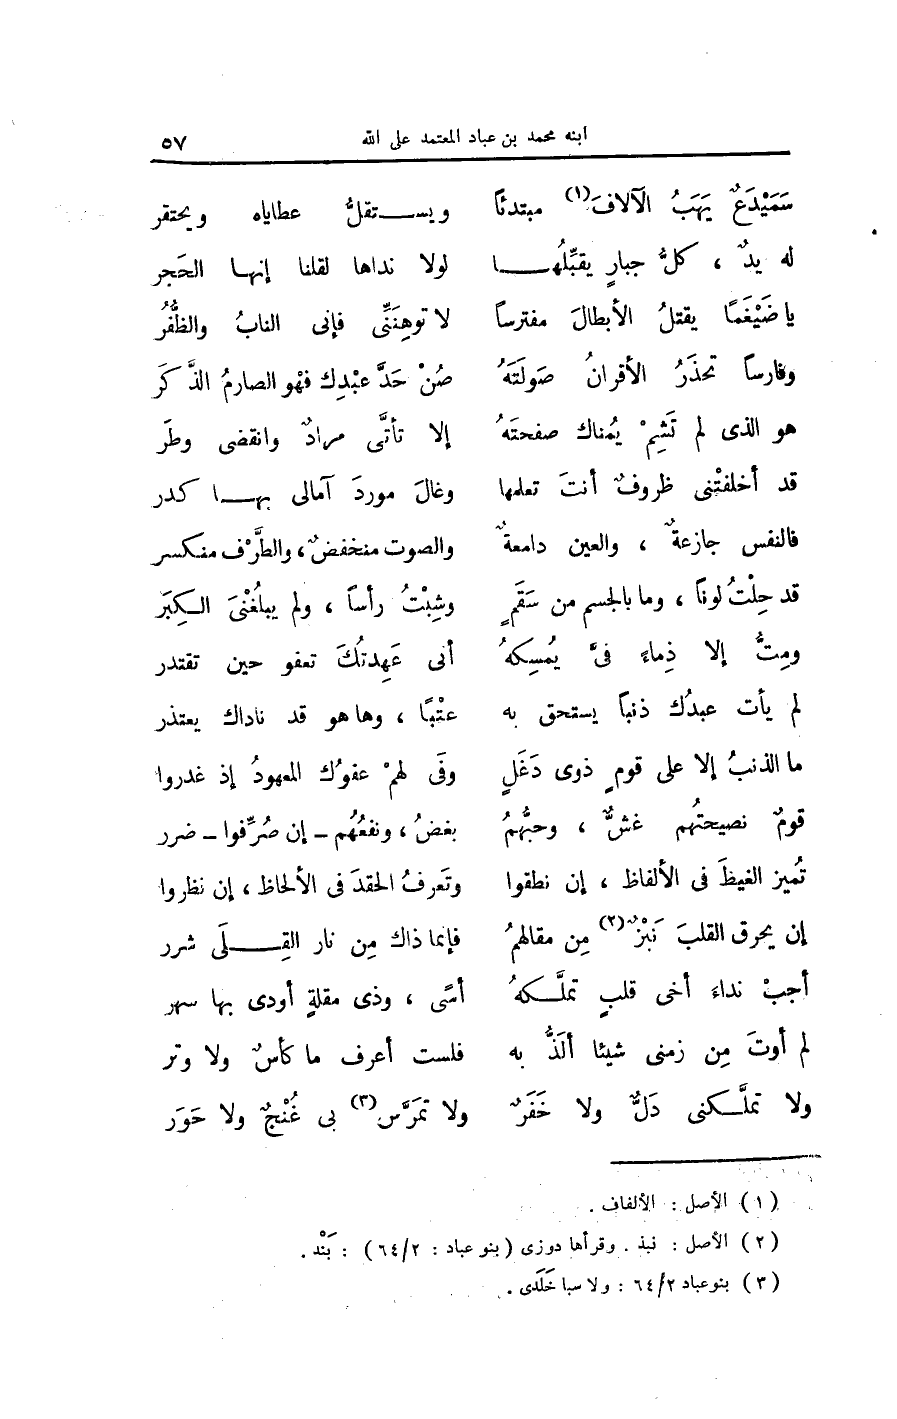 ابنه محمد بن عباد المعتمد على الله ٥٧
سَمَيْدَعٌ يَهَبُ الآلافَ(١) مبتدئًا ويستقلُّ عطاياه ويحتقر
له يدٌ ، كلُّ جبارٍ يقبِّلُها لولا نداها لقلنا إنها الحَجر
يا ضَيْغَمًا يقتلُ الأبطالَ مفترساً لا توهِنَنِّى فإنى النابُ والظُّفُرُ
وفارساً تحذَرُ الأقرانُ صَولَتَهُ صُنْ حَدَّ عبْدِك فهْو الصارمُ الذَّكَر
هو الذى لم تَشِمْ يُمناك صفحتَهُ إلا تأتَّى مرادٌ وانقضى وطَر
قد أخلفتْنى ظروفٌ أنتَ تعلمها وغالَ موردَ آمالى بها كدر
فالنفس جازعةٌ ، والعين دامعةٌ والصوت منخفضٌ، والطَّرْف منكسر
قد حِلْتُ لوناً ، وما بالجسم من سَقَمٍ وشِبْتُ رأساً ، ولم يبلغْنىَ الكِبَر
ومِتُّ إلا ذِماءً فىَّ يُمسِكهُ أنى عَهِدتُكَ تعفو حين تقتدر
لم يأت عبدُك ذنباً يستحق به عتْبًا ، وها هو قد ناداك يعتذر
ما الذنبُ إلا على قومٍ ذوى دَغَلٍ وفَى لهمْ عفوُك المعهودُ إذ غدروا
قومٌ نصيحتُهم غشٌّ ، وحبُّهمُ بغضُ ، ونفعُهُم – إن صُرِّفوا – ضرر
تُميز الغيظَ فى الألفاظ ، إن نطقوا وتَعرفُ الحقدَ فى الألحاظ ، إن نظروا
إن يحرق القلبَ نَبْزٌ(٢) مِن مقالهمُ فإنما ذاك مِن نار القِلَى شرر
أجبْ نداءَ أخى قلبٍ تملَّكهُ أسًى ، وذى مقلةٍ أودى بها سهر
لم أوتَ مِن زمنى شيئا ألَذُّ به فلست أعرف ما كأسٌ ولا وتر
ولا تملَّكنى دَلٌّ ولا خَفَرٌ ولا تمَرَّس(٣) بى غُنْجٌ ولا حَوَر
(١) الأصل : الألفاف .
(٢) الأصل : نبذ . وقرأها دوزى (بنو عباد : ٦٤/٢) : بَنْد .
(٣) بنو عباد ٦٤/٢ : ولا سبا خَلَدى .